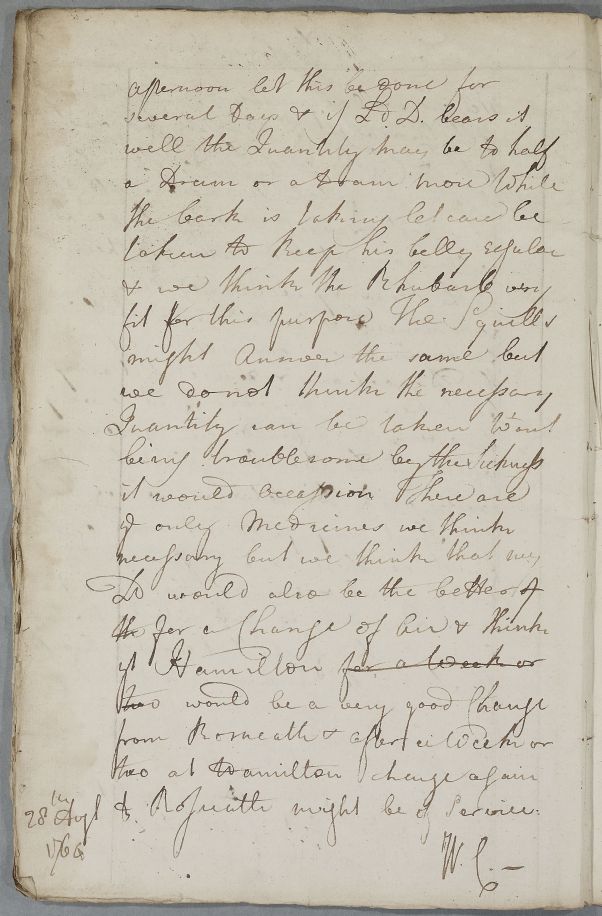 afternoon let this be done for
several Days & if Ld D. bears it
well the Quantity may be to half
a Dram or a Dram more While
the bark is taking let care be
taken to keep his belly regular
& we think the Rhubarb very
fit for this purpose The Squills
might Answer the same but
we do not think the necessary
Quantity can be taken wout
being troublesome by the Sickness
it would occassion These are
ye only Medicines we think
necessary but we think that my
Ld would also be the better of
the for a Change of air & think
yt Hamilton for a Week or
two would be a very good Change
from Rosneath & after a Week or
two at Hamilton change again
to Rosneath might be of Service.
28th Augt
1766
W. C.